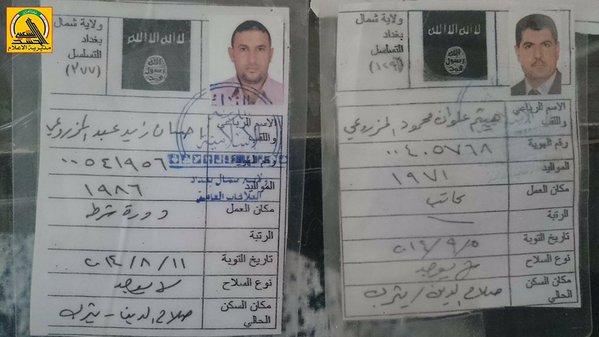 مديرية الاعلام
ولاية شمال
بغداد
التسلسل
(٢٧٧)
لا اله الا الله
الله
رسول
محمد
الاسم الرباعي
واللقب
زيد عبد المزروعي
رقم الهوية
٠٠٥٤١٩٥٦
المواليد
١٩٨٦
مكان العمل
دورة شرطة
الرتبة
تاريخ التوبة
٢٠١٤/٨/١١
نوع السلاح
لا يوجد
مكان السكن
الحالي
صلاح الدين - يثرب
ولاية شمال
بغداد
التسلسل
لا اله الا الله
الله
رسول
محمد
الاسم الرباعي
واللقب
هيثم علوان محمود المزروعي
رقم الهوية
٠٠٤٠٥٧٦٨
المواليد
١٩٧١
مكان العمل
كاتب
الرتبة
تاريخ التوبة
٢٠١٤/٩/٥
نوع السلاح
يوجد
مكان السكن
الحالي
صلاح الدين / يثرب